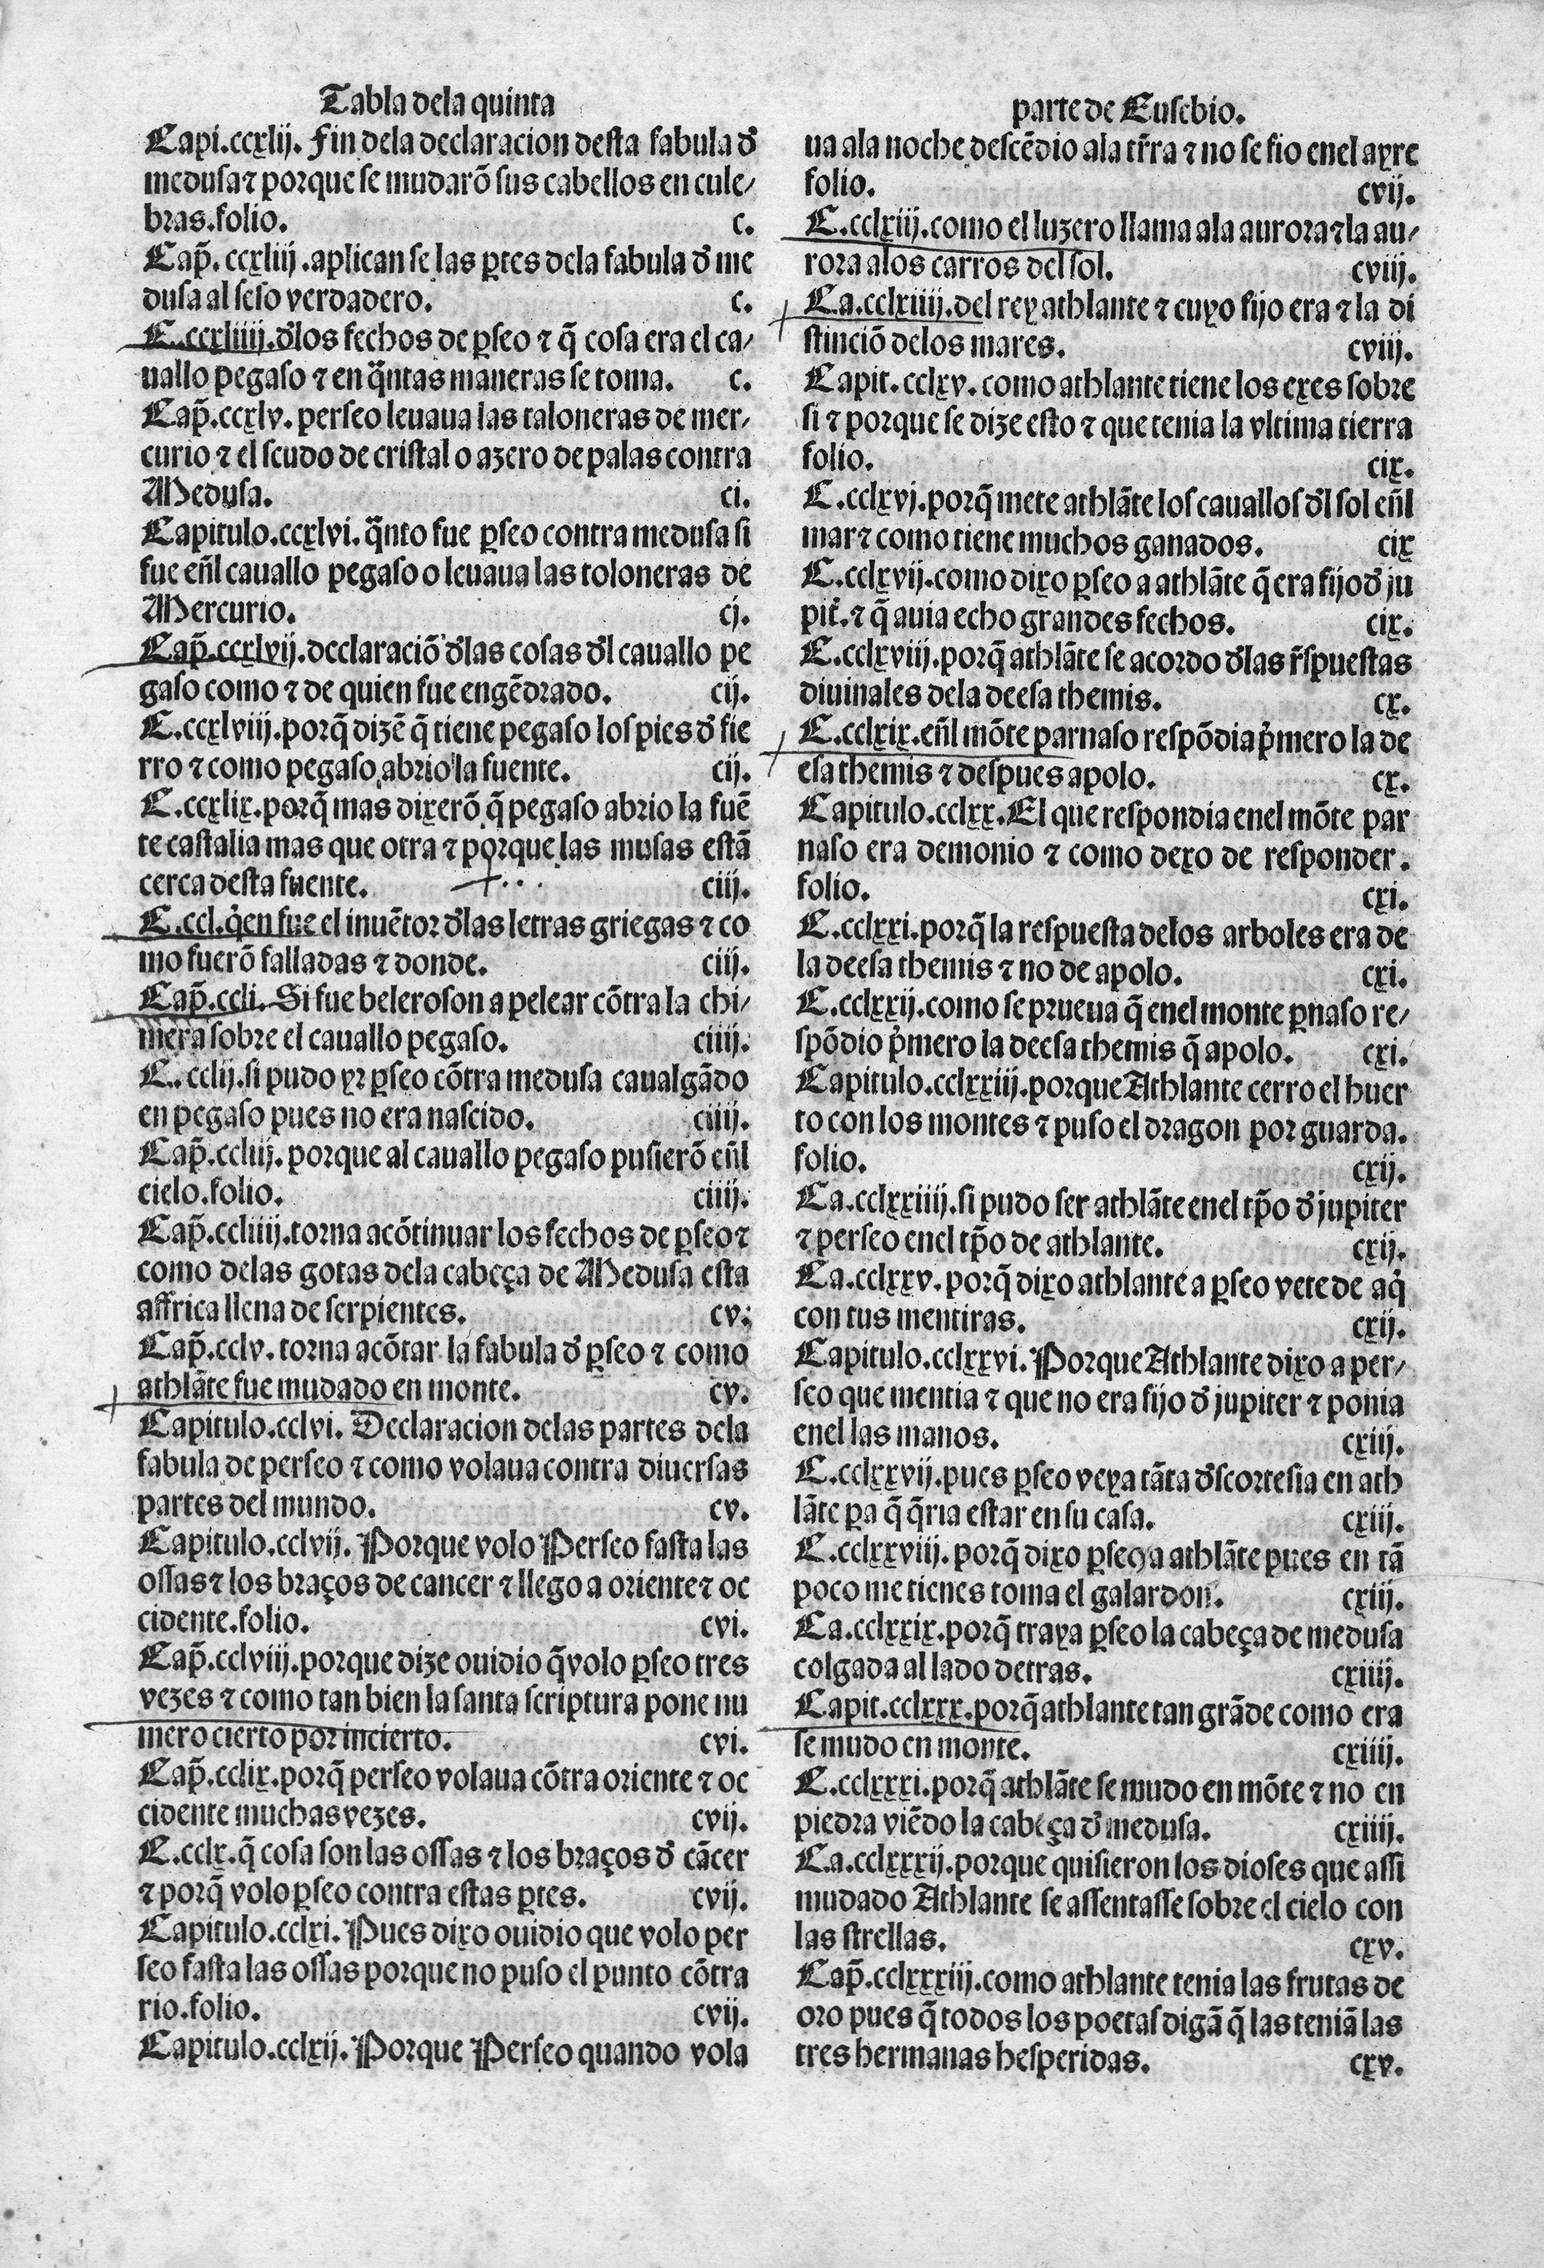 Tabla dela quinta
Capi.ccxlij. Fin dela declaracion desta fabula d̕
medusa ⁊ porque se mudarõ sus cabellos en cule/
bras.folio. c.
Cap̃. ccxliij .aplican se las ꝑtes dela fabula d̕ me
dusa al seso verdadero. c.
C.ccxliiij.d̕los fechos de ꝑseo ⁊ q̃ cosa era el ca/
uallo pegaso ⁊ en q̃ntas maneras se toma. c.
Cap̃.ccxlv. perseo leuaua las taloneras de mer/
curio ⁊ el scudo de cristal o azero de palas contra
Medusa. ci.
Capitulo.ccxlvi. q̃nto fue ꝑseo contra medusa si
fue eñl cauallo pegaso o leuaua las toloneras de
Mercurio. cj.
Cap̃.ccxlvij.declaraciõ d̕las cosas d̕l cauallo pe
gaso como ⁊ de quien fue engẽdrado. cij.
C.ccxlviij.porq̃ dizẽ q̃ tiene pegaso los pies d̕ fie
rro ⁊ como pegaso abrio la fuente. cij.
C.ccxlix.porq̃ mas dixerõ q̃ pegaso abrio la fuẽ
te castalia mas que otra ⁊ porque las musas estã
cerca desta fuente. ciij.
C.ccl.q̃en fue el inuẽtor d̕las letras griegas ⁊ co
mo fuerõ falladas ⁊ donde. ciij.
Cap̃.ccli. Si fue beleroson a pelear cõtra la chi/
mera sobre el cauallo pegaso. ciiij.
C.cclij.si pudo yr ꝑseo cõtra medusa caualgãdo
en pegaso pues no era nascido. ciiij.
Cap̃.ccliij.porque al cauallo pegaso pusierõ eñl
cielo.folio. ciiij.
Cap̃.ccliiij.torna acõtinuar los fechos de ꝑseo ⁊
como delas gotas dela cabeça de Medusa esta
affrica llena de serpientes. cv.
Cap̃.cclv. torna acõtar la fabula d̕ ꝑseo ⁊ como
athlãte fue mudado en monte. cv.
Capitulo.cclvi. Declaracion delas partes dela
fabula de perseo ⁊ como volaua contra diuersas
partes del mundo. cv.
Capitulo.cclvij. Porque volo Perseo fasta las
ossas ⁊ los braços de cancer ⁊ llego a oriente ⁊ oc
cidente.folio. cvi.
Cap̃.cclviij.porque dize ouidio q̃ volo ꝑseo tres
vezes ⁊ como tan bien la santa scriptura pone nu
mero cierto por incierto. cvi.
Cap̃.cclix.porq̃ perseo volaua cõtra oriente ⁊ oc
cidente muchas vezes. cvij.
C.cclx.q̃ cosa son las ossas ⁊ los braços d̕ cãcer
⁊ porq̃ volo ꝑseo contra estas ꝑtes. cvij.
Capitulo.cclxi. Pues dixo ouidio que volo per
seo fasta las ossas porque no puso el punto cõtra
rio.folio. cvij.
Capitulo.cclxij. Porque Perseo quando vola
parte de Eusebio.
ua ala noche descẽdio ala tr̃ra ⁊ no se fio enel ayre
folio. cvij.
C.cclxiij.como el luzero llama ala aurora ⁊ la au/
rora alos carros del sol. cviij.
Ca.cclxiiij.del rey athlante ⁊ cuyo fijo era ⁊ la di
stinciõ delos mares. cviij.
Capit.cclxv.como athlante tiene los exes sobre
si ⁊ porque se dize esto ⁊ que tenia la vltima tierra
folio. cix.
C.cclxvj.porq̃ mete athlãte los cauallos d̕l sol eñl
mar ⁊ como tiene muchos ganados. cix
C.cclxvij.como dixo ꝑseo a athlãte q̃ era fijo d̕ ju
pit̃. ⁊ q̃ auia echo grandes fechos. cix.
C.cclxviij.porq̃ athlãte se acordo d̕las r̃spuestas
diuinales dela deesa themis. cx.
C.cclxix.eñl mõte parnaso respõdia p̃mero la de
esa themis ⁊ despues apolo. cx.
Capitulo.cclxx.El que respondia enel mõte par
naso era demonio ⁊ como dexo de responder.
folio. cxi.
C.cclxxi.porq̃ la respuesta delos arboles era de
la deesa themis ⁊ no de apolo. cxi.
C.cclxxij.como se prueua q̃ enel monte ꝑnaso re/
spõdio p̃mero la deesa themis q̃ apolo. cxi.
Capitulo.cclxxiij.porque Athlante cerro el huer
to con los montes ⁊ puso el dragon por guarda.
folio. cxij.
Ca.cclxxiiij.si pudo ser athlãte enel tp̃o d̕ jupiter
⁊ perseo enel tp̃o de athlante. cxij.
Ca.cclxxv.porq̃ dixo athlante a ꝑseo vete de aq̃
con tus mentiras. cxij.
Capitulo.cclxxvi. Porque Athlante dixo a per/
seo que mentia ⁊ que no era fijo d̕ jupiter ⁊ ponia
enel las manos. cxiij.
C.cclxxvij.pues ꝑseo veya tãta d̕scortesia en ath
lãte ꝑa q̃ q̃ria estar en su casa. cxiij.
C.cclxxviij.porq̃ dixo ꝑseo a athlãte pues en tã
poco me tienes toma el galardon. cxiij.
Ca.cclxxix.porq̃ traya ꝑseo la cabeça de medusa
colgada al lado detras. cxiiij.
Capit.cclxxx.porq̃ athlante tan grãde como era
se mudo en monte. cxiiij.
C.cclxxxi.porq̃ athlãte se mudo en mõte ⁊ no en
piedra viẽdo la cabeça d̕ medusa. cxiiij.
Ca.cclxxxij.porque quisieron los dioses que assi
mudado Athlante se assentasse sobre el cielo con
las strellas. cxv.
Cap̃.cclxxxiij.como athlante tenia las frutas de
oro pues q̃ todos los poetas digã q̃ las teniã las
tres hermanas hesperidas. cxv.